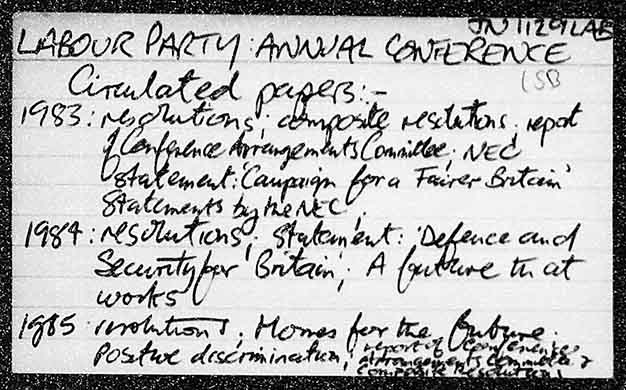 JN 1129 LAB
LABOUR PARTY: ANNUAL CONFERENCE
LSB
Circulated papers:-
1983: resolutions; composite resolutions; report
of Conference Arrangements Committee; NEC
statement: 'Campaign for a Fairer Britain'
Statements by the NEC;
1984: resolutions; Statement: 'Defence and
Security for Britain'; A future that
works
1985: resolutions; Homes for the future.
Positive discrimination; report of Conference
Arrangements Committee &
Composite Resolutions